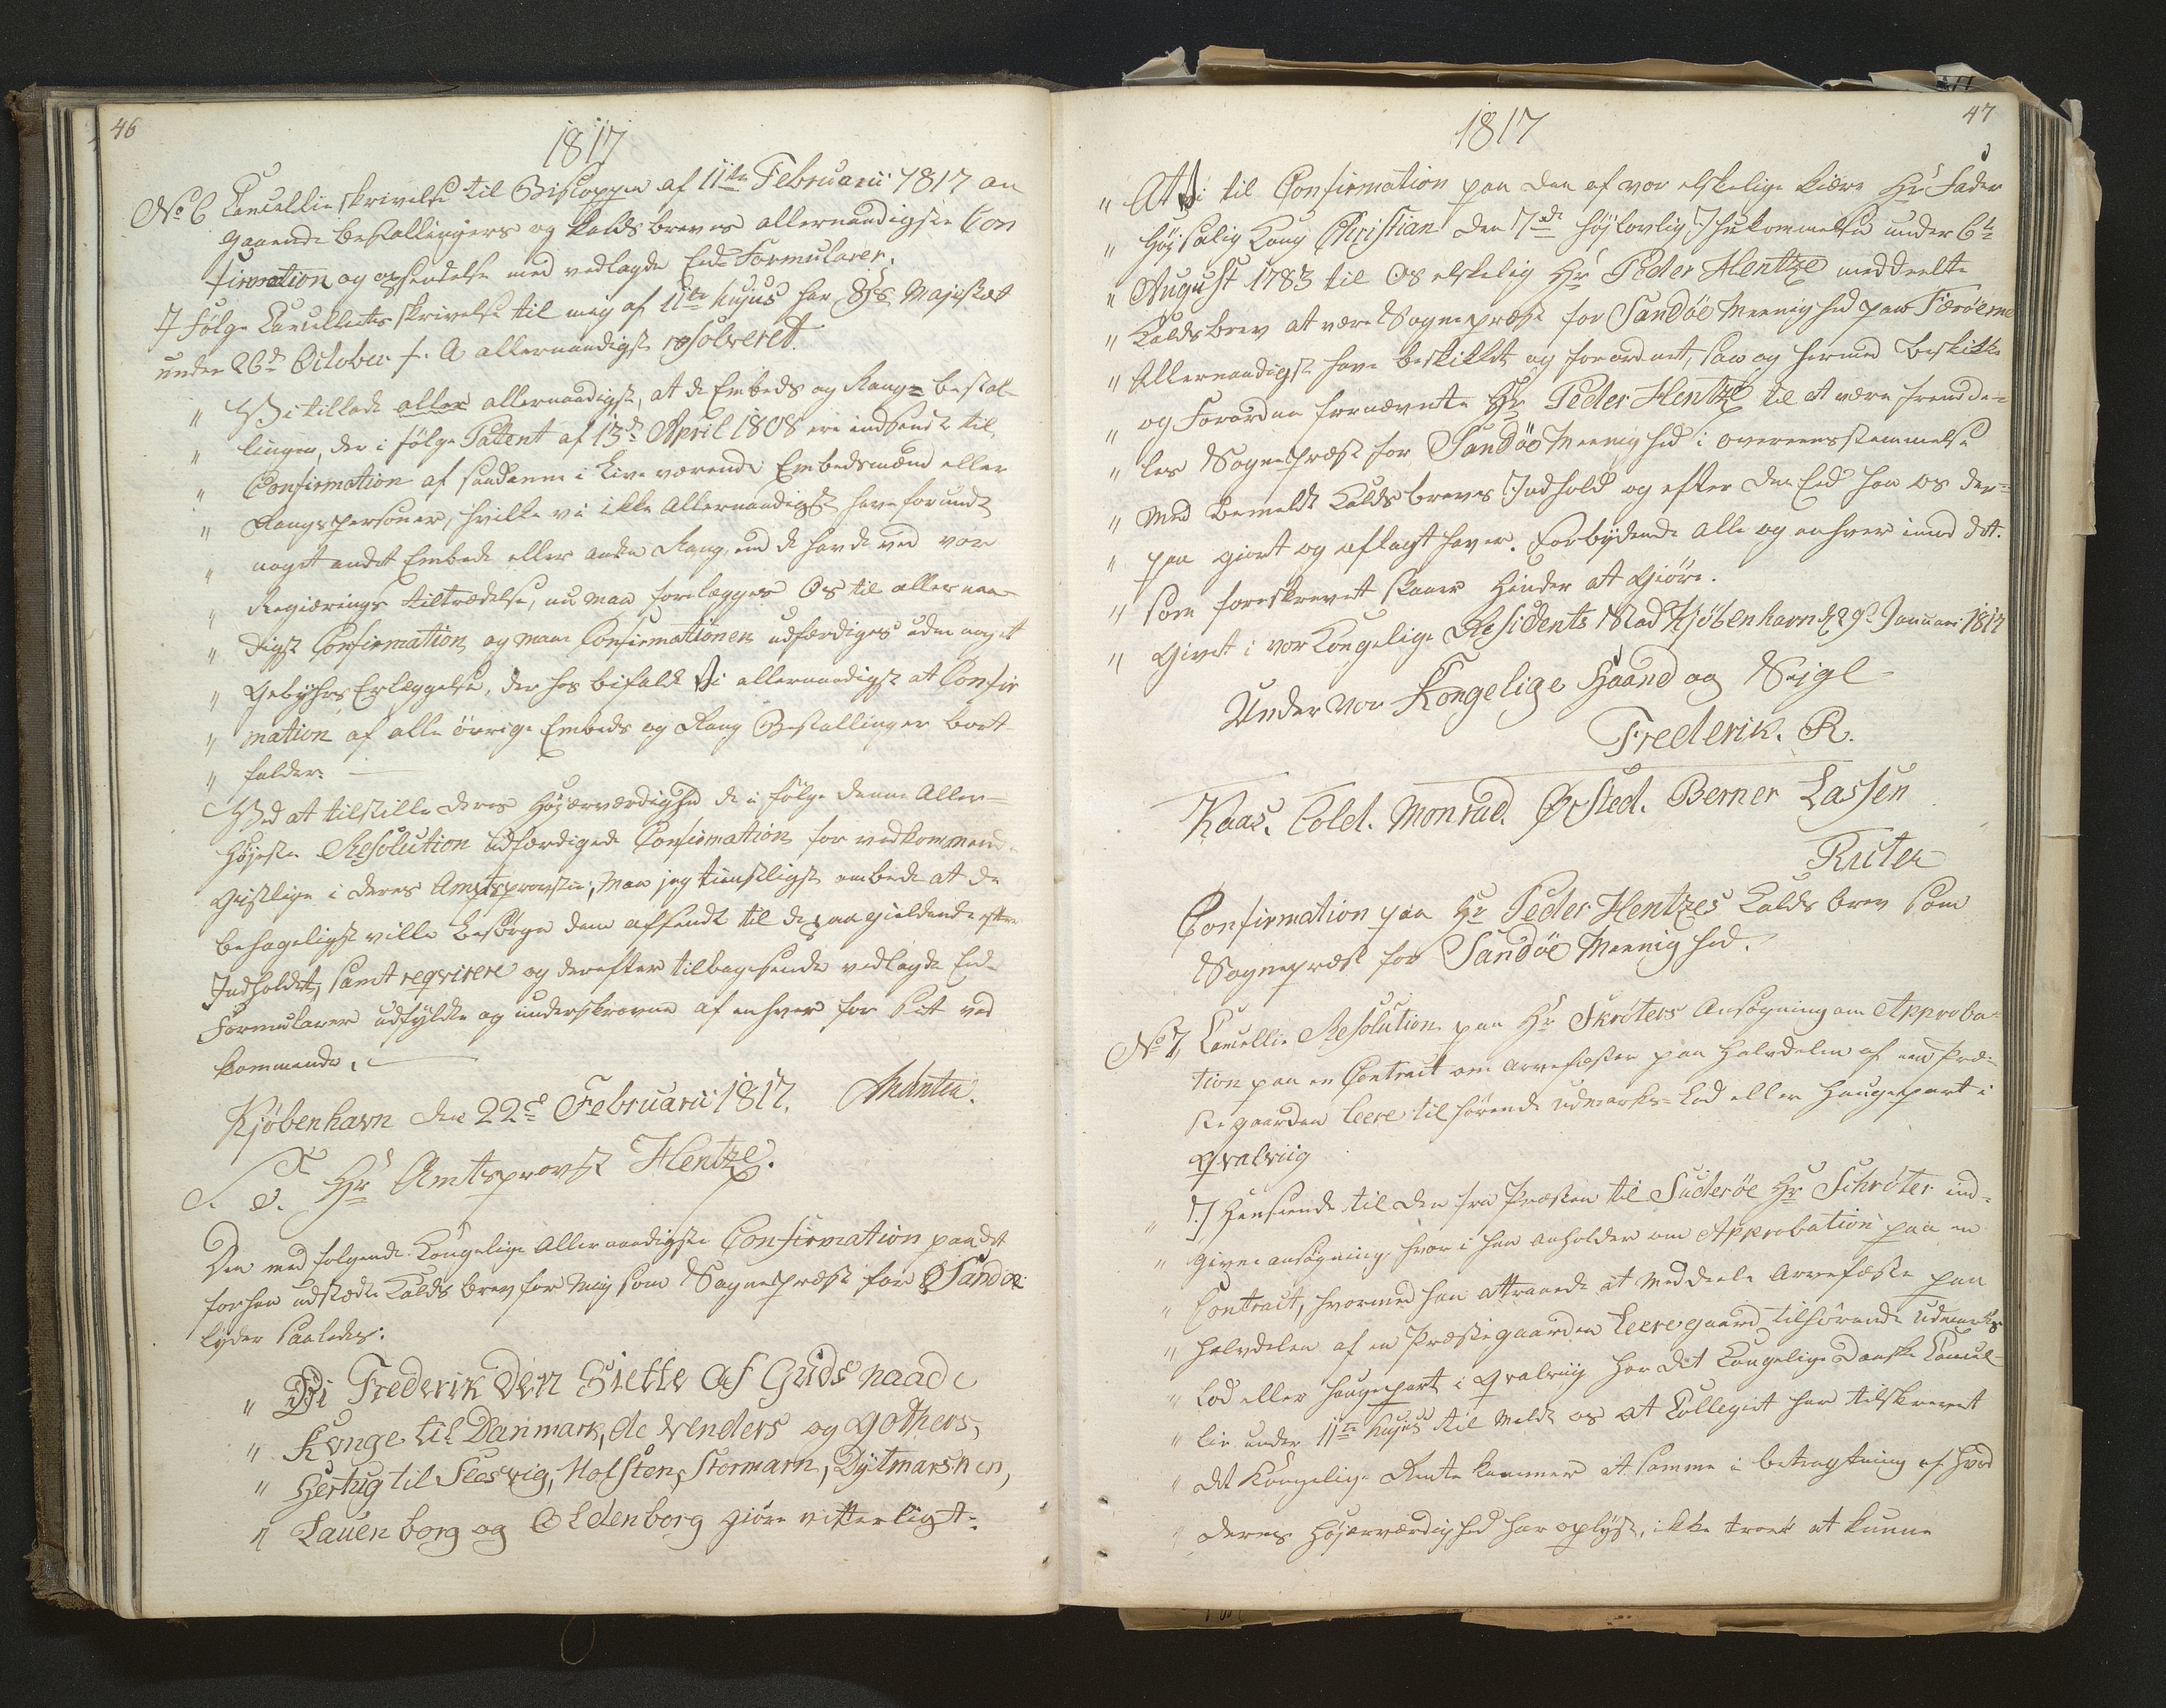 46
1817
No 6 Cancellie skrivelse til Biskoppen af 11te Februarii 1817 an
gaaende bestallingers og kaldsbreves allernaadigste Con
firmation og opsendelse med vedlagde Eed-Formularer.
I følge Cancelliets skrivelse til mig af 11te hujus har Hs Majestæt
under 26d October f. A allernaadigst resolveret.
" Vi tillade allerallernaadigst, at de Embeds og Rang= bestal-
" linger, der i følge Patent af 13de April 1808 ere indsendt til
" Confirmation af saadanne i Live værende Embedsmænd eller
" Rangspersoner, hvilke vi ikke Allernaadigst have forundt
" noget andet Embede eller anden Rang, end de havde ved vor
" Regierings tiltrædelse, nu maa forelægges Os til allernaa-
" digst Confirmation, og maae Confirmationen udfærdiges uden noget
" Gebyhrs Erlæggelse, der hos bifalde Vi allernaadigst at Confir
" mation af alle øvrige Embeds og Rang Bestallinger bort
" falder. —
Ved at tilstille Deres Høiærværdighed de i følge denne Aller-
Høieste Resolution udfærdigede Confirmation for vedkommende
Geistlige i Deres Amtsprovstie, maa jeg tienstligst ombede at De
behageligst ville besørge dem afsendt til de paagieldende efter
Indholdet, samt reqvirere og derefter tilbagesende vedlagde Eed-
Formularer udfyldte og underskrevne af enhver for sit ved
kommende. —
Kjøbenhavn den 22de Februarii 1817. Münter.
S. T. Hr Amtsprovst Hentze.
Den med følgende Kongelige Allernaadigste Confirmation paa det
forhen udstædte Kalds brev for mig som Sognepræst for Sandøe
lyder saaledes:
" Vi Frederik den Siette af Guds naade
" Konge til Danmark, de Venders og Gothers,
" Hertug til Slesvig, Holsten, Stormarn, Dytmarsken,
" Lauenborg og Oldenborg giøre vitterligt:
47
1817
" At Vi til Confirmation paa den af vor elskelige kiære Hr Fader
" Høysalig Kong Christian den 7de høylovlig Ihukommelse under 6te
" August 1783 til Os elskelig Hr Peder Hentze meddeelte
" Kaldsbrev at være Sognepræst for Sandøe Meenighed paa Færøerne
" Allernaadigst have beskikket og forordnet, saa og hermed beskikke
" og Forordne fornævnte Hr Peder Hentze til at være fremde-
" les Sognepræst for Sandøe Meenighed i overeensstemmelse
" med bemeldte Kaldsbreves Indhold og efter den Eed han os der-
" paa giort og aflagt haver. Forbydende alle og enhver imod det.
" som foreskrevet staaer Hinder at giøre.
" Givet i vor Kongelige Residents Stad Kjøbenhavn d. 29de Januari 1817
Under vor Kongelige Haand og Seigl
Frederik. R.
Kaas. Cold. Monrad. Ørsted. Berner Lassen
Ruter
Confirmation paa Hr Peder Hentzes Kalds brev som
Sognepræst for Sandøe Meenighed.
No 7, Cancellie Resolution paa Hr Skrøters Ansøgning om Approba-
tion paa en Contract om arvefæste paa Halvdelen af een Præ-
stegaarden Leere tilhørende udmarks-Lod eller Haugepart i
Qvalviig
" I Henseende til den fra Præsten til Suderøe Hr Schrøter ind-
" givne ansøgning, hvori han anholder om Approbation paa en
" Contract, hvormed han attraaede at meddeele Arvefæste paa
" Halvdelen af en Præstegaarden Leeregaard tilhørende udmarks
" Lod eller haugepart i Qvalviig har det Kongelige Danske Cancel-
" lie under 11te hujus til meldt os at Collegiet har tilskrevet
" det Kongelige Rente kammer at samme i betragtning af hvad
" Deres Høiærværdighed har oplyst, ikke troer at kunne